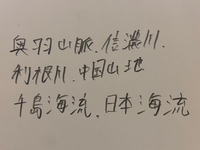 奥羽山脈、信濃川、
利根川、中国山地
千島海流、日本海流